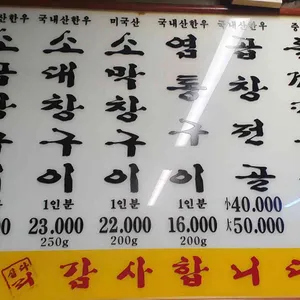 국내산한우
소대창구이
1인분
23.000
250g
미국산
소막창구이
1인분
22.000
200g
국내산한우
염통구이
1인분
16.000
200g
국내산한우
곱창전골
小40.000
大50.000
감사합니다